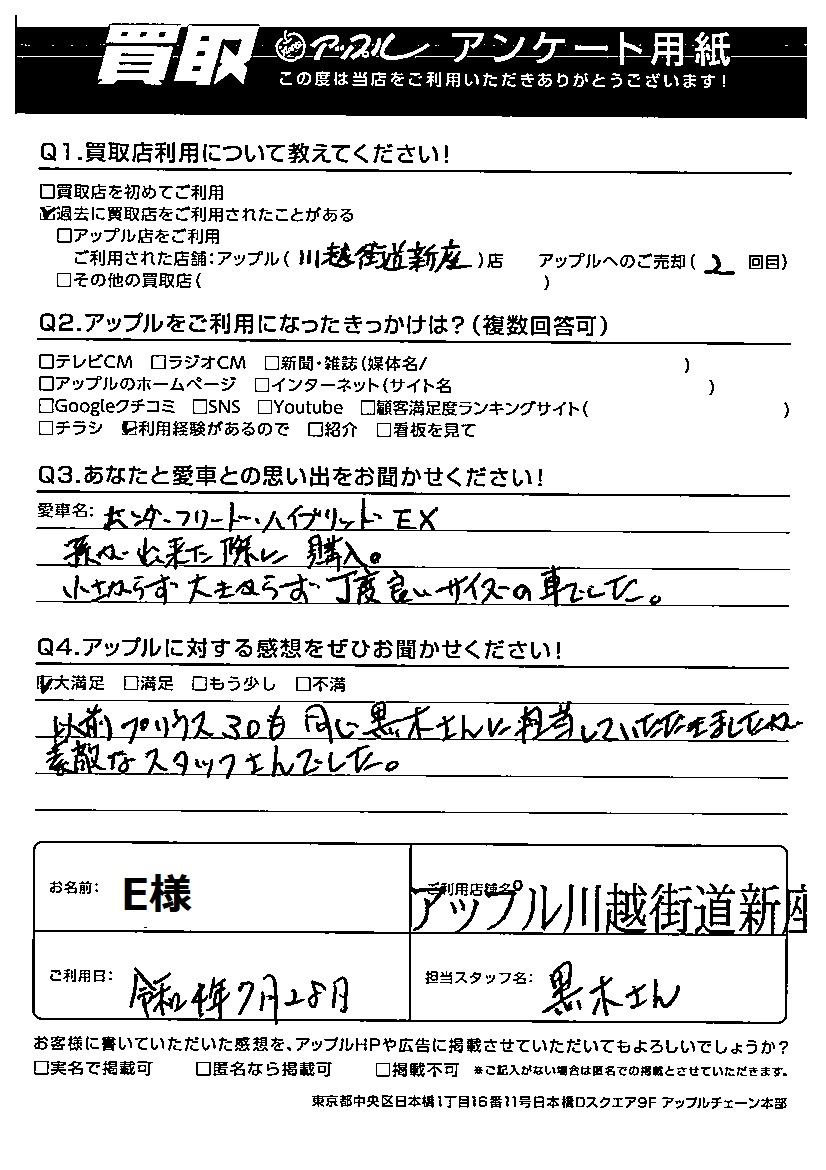 買取 アップル アンケート用紙
この度は当店をご利用いただきありがとうございます!
Q1.買取店利用について教えてください!
□買取店を初めてご利用
☑過去に買取店をご利用されたことがある
□アップル店をご利用
ご利用された店舗:アップル(川越街道新座)店 アップルへのご売却(2 回目)
□その他の買取店( )
Q2.アップルをご利用になったきっかけは?(複数回答可)
□テレビCM □ラジオCM □新聞・雑誌(媒体名/ )
□アップルのホームページ □インターネット(サイト名 )
□Googleクチコミ □SNS □Youtube □顧客満足度ランキングサイト( )
□チラシ ☑利用経験があるので □紹介 □看板を見て
Q3.あなたと愛車との思い出をお聞かせください!
愛車名: ホンダ・フリード・ハイブリッド EX
孫が出来た際に購入。
小さならず大きならず丁度良いサイズの車でした。
Q4.アップルに対する感想をぜひお聞かせください!
☑大満足 □満足 □もう少し □不満
以前プリウス30も同じ黒木さんに担当していただきましたが
素敵なスタッフさんでした。
お名前: E様
ご利用店舗名:
アップル川越街道新座
ご利用日: 令和4年7月28日
担当スタッフ名: 黒木さん
お客様に書いていただいた感想を、アップルHPや広告に掲載させていただいてもよろしいでしょうか?
□実名で掲載可 □匿名なら掲載可 □掲載不可 ※ご記入がない場合は匿名での掲載とさせていただきます。
東京都中央区日本橋1丁目16番11号日本橋Dスクエア9F アップルチェーン本部